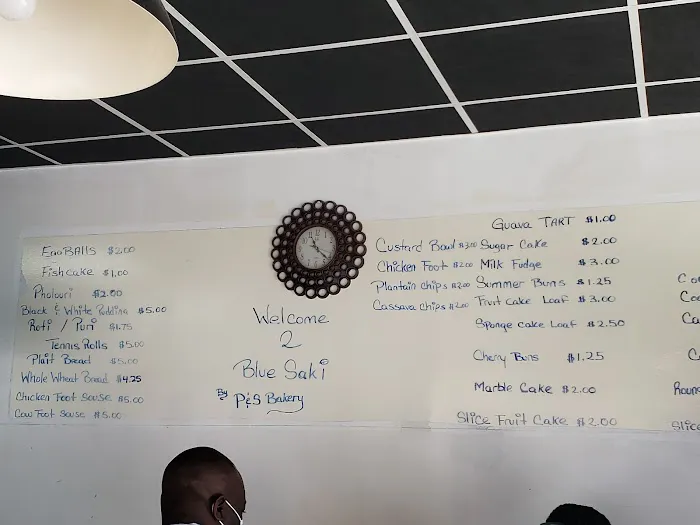 Egg BALLS $2.00
Fishcake $1.00
Pholouri $2.00
Black & White Pudding $5.00
Roti / Puri $1.75
Tennis Rolls $5.00
Plait Bread $5.00
Whole Wheat Bread $4.25
Chicken Foot Souse $5.00
Cow Foot Souse $5.00
Welcome
2
Blue Saki
By P&S Bakery
Guava TART $1.00
Custard Bowl $3.00 Sugar Cake $2.00
Chicken Foot $2.00 Milk Fudge $3.00
Plantain Chips $2.00 Summer Buns $1.25
Cassava Chips $2.00 Fruit Cake Loaf $3.00
Sponge Cake Loaf $2.50
Cherry Buns $1.25
Marble Cake $2.00
Slice Fruit Cake $2.00